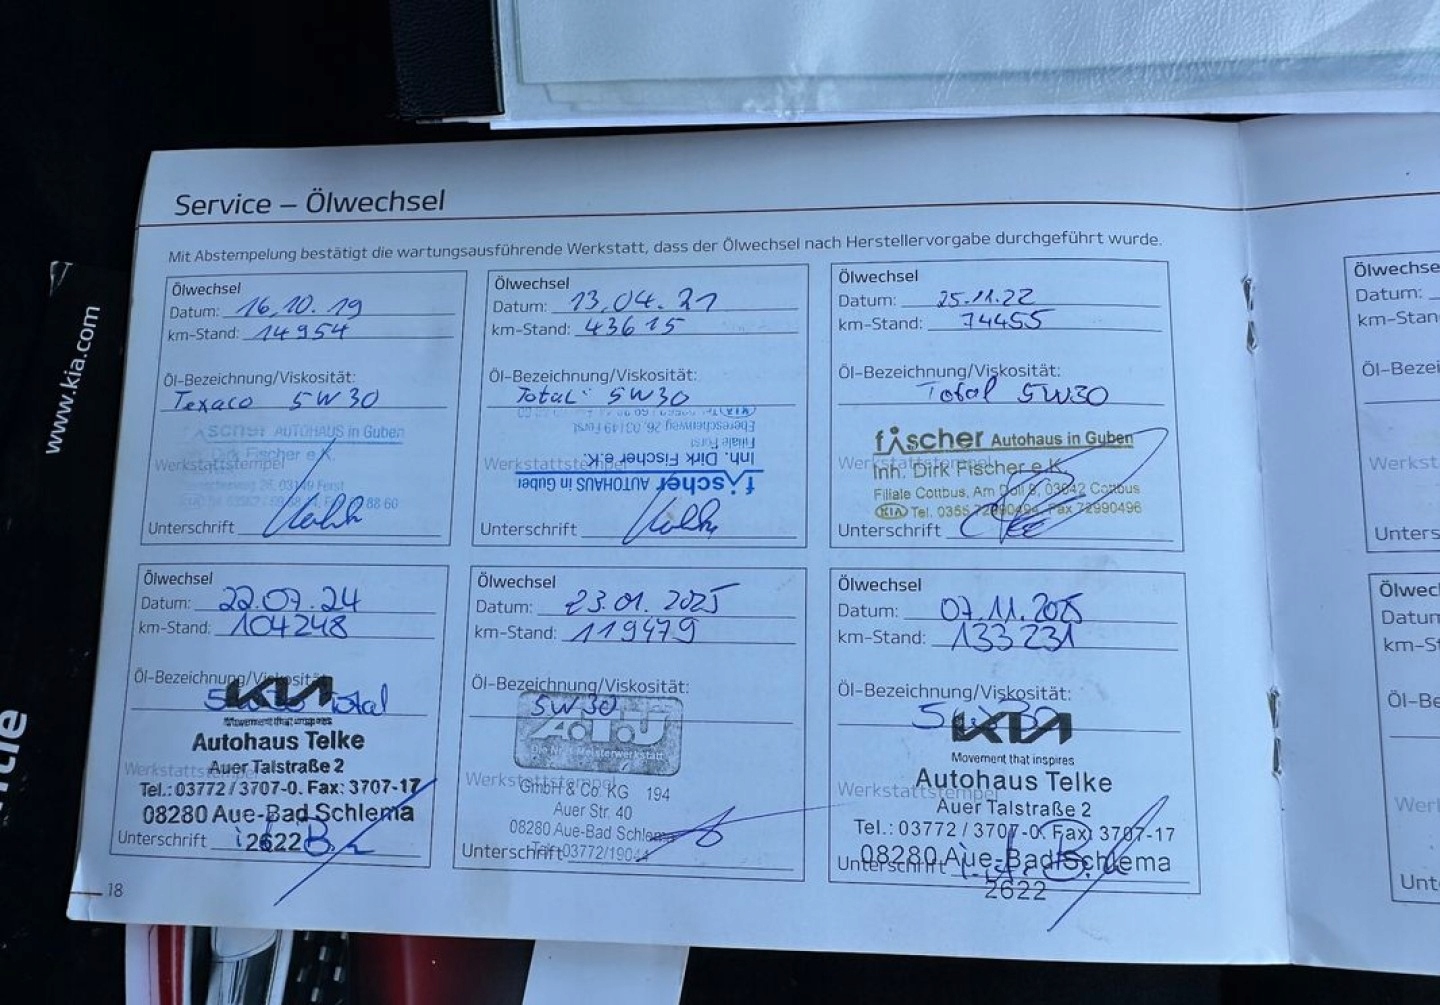 www.kia.com
Service – Ölwechsel
Mit Abstempelung bestätigt die wartungsausführende Werkstatt, dass der Ölwechsel nach Herstellervorgabe durchgeführt wurde.
Ölwechsel
Datum: 16.10.19
km-Stand: 14954
Öl-Bezeichnung/Viskosität:
Texaco 5W30
fischer AUTOHAUS in Guben
Dirk Fischer e.K.
Werkstattstempel
26, 03149 Forst
88 60
Unterschrift
Ölwechsel
Datum: 13.04.21
km-Stand: 43615
Öl-Bezeichnung/Viskosität:
Total 5W30
Ebereschenweg 26, 03149 Forst
Filiale Forst
Werkstattstempel
Inh. Dirk Fischer e.K.
fischer AUTOHAUS in Guben
Unterschrift
Ölwechsel
Datum: 25.11.22
km-Stand: 74455
Öl-Bezeichnung/Viskosität:
Total 5W30
fischer Autohaus in Guben
Werkstattstempel
Inh. Dirk Fischer e.K.
Filiale Cottbus, Am Doll 8, 03042 Cottbus
KIA Tel. 0355 72990494, Fax 72990496
Unterschrift
Ölwechsel
Datum: 22.07.24
km-Stand: 104248
Öl-Bezeichnung/Viskosität:
Total
KIA
Movement that inspires
Autohaus Telke
Auer Talstraße 2
Werkstattstempel
Tel.: 03772 / 3707-0. Fax: 3707-17
08280 Aue-Bad Schlema
Unterschrift
2622
Ölwechsel
Datum: 23.01.2025
km-Stand: 119479
Öl-Bezeichnung/Viskosität:
5W30
A.T.U
Die Nr. 1 Meisterwerkstatt
Werkstattstempel
GmbH & Co. KG 194
Auer Str. 40
08280 Aue-Bad Schlema
Unterschrift
Tel. 03772/19044
Ölwechsel
Datum: 07.11.2025
km-Stand: 133231
Öl-Bezeichnung/Viskosität:
5W30
KIA
Movement that inspires
Autohaus Telke
Werkstattstempel
Auer Talstraße 2
Tel.: 03772 / 3707-0. Fax: 3707-17
08280 Aue-Bad Schlema
Unterschrift
2622
18
Ölwechse
Datum:
km-Stan
Öl-Bezei
Werkst
Unters
Ölwec
Datum
km-St
Öl-Be
Wer
Unt